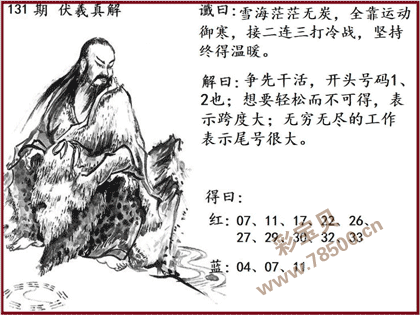 131 期 伏羲真解
谶曰：雪海茫茫无炭，全靠运动
御寒，接二连三打冷战，坚持
终得温暖。
解曰：争先干活，开头号码1、
2也；想要轻松而不可得，表
示跨度大；无穷无尽的工作
表示尾号很大。
得曰：
红：07、11、17、22、26、
27、29、30、32、33
蓝：04、07、11
彩宝贝
www.78500.cn